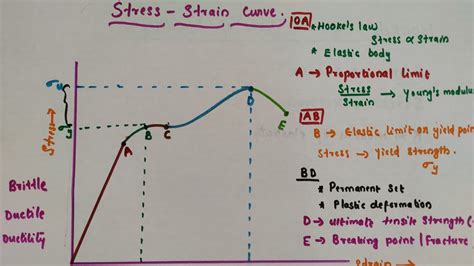 Stress - Strain Curve.
OA
* Hooke's law
Stress ∝ Strain
* Elastic body
A → Proportional limit
Stress/Strain → Young's modulus
AB
B → Elastic limit on yield poin
Stress → Yield Strength.
σy
BD
* Permanent Set
* Plastic deformation
D → Ultimate tensile Strength (
E → Breaking point / Fracture
σu
σy
Stress →
A
B
C
D
E
Brittle
Ductile
Ductility
Strain →